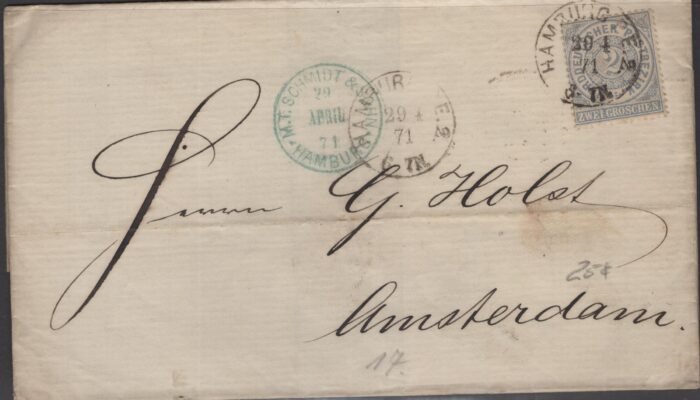 HAMBURG
29 4
71
6-7N.
NORDDEUTSCHER POSTBEZIRK
2
ZWEI GROSCHEN
M.T. SCHMIDT &
29
APRIL
71
HAMBURG
29 4
71
6-7N.
Herrn G. Holst
25¢
Amsterdam.
17.